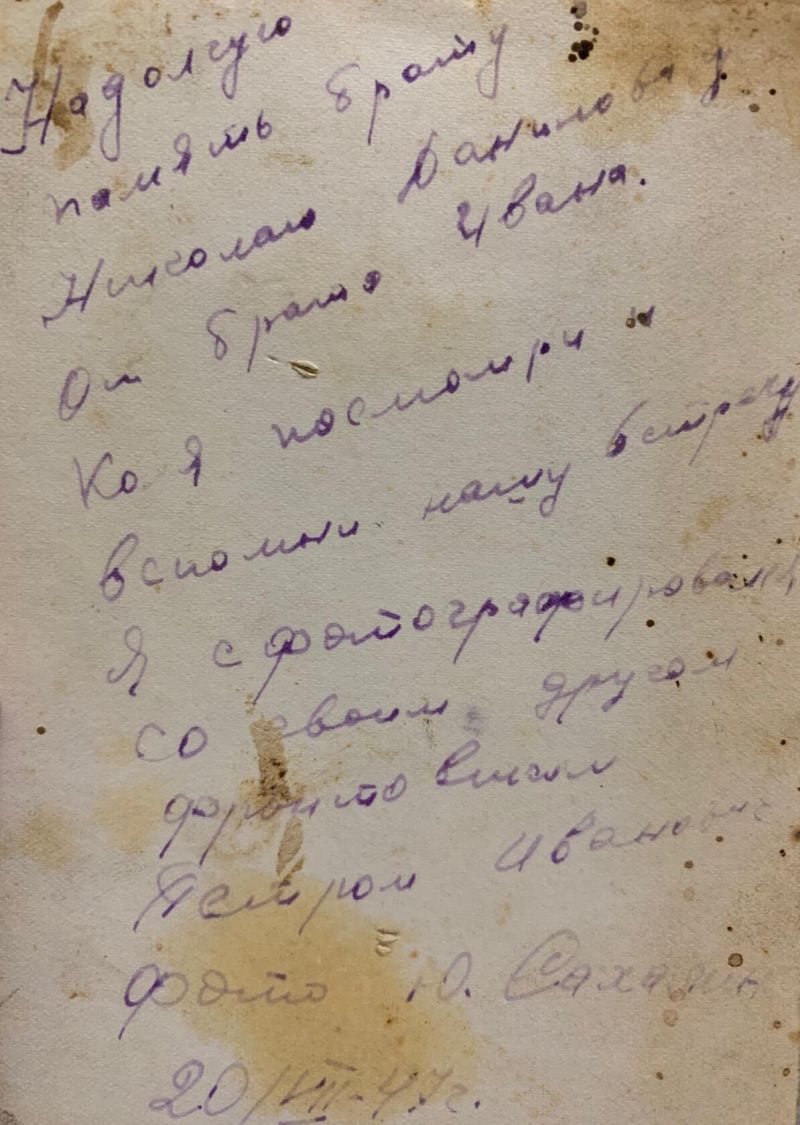 Надолгую
память брату
Николаю Данилову
От брата Ивана.
Ко я посмотри и
вспомни нашу встречу
Я сфотографировался
со своим другом
фронтовиком
Петром Иванович
Фото Ю. Сахалин
20/VII-47г.